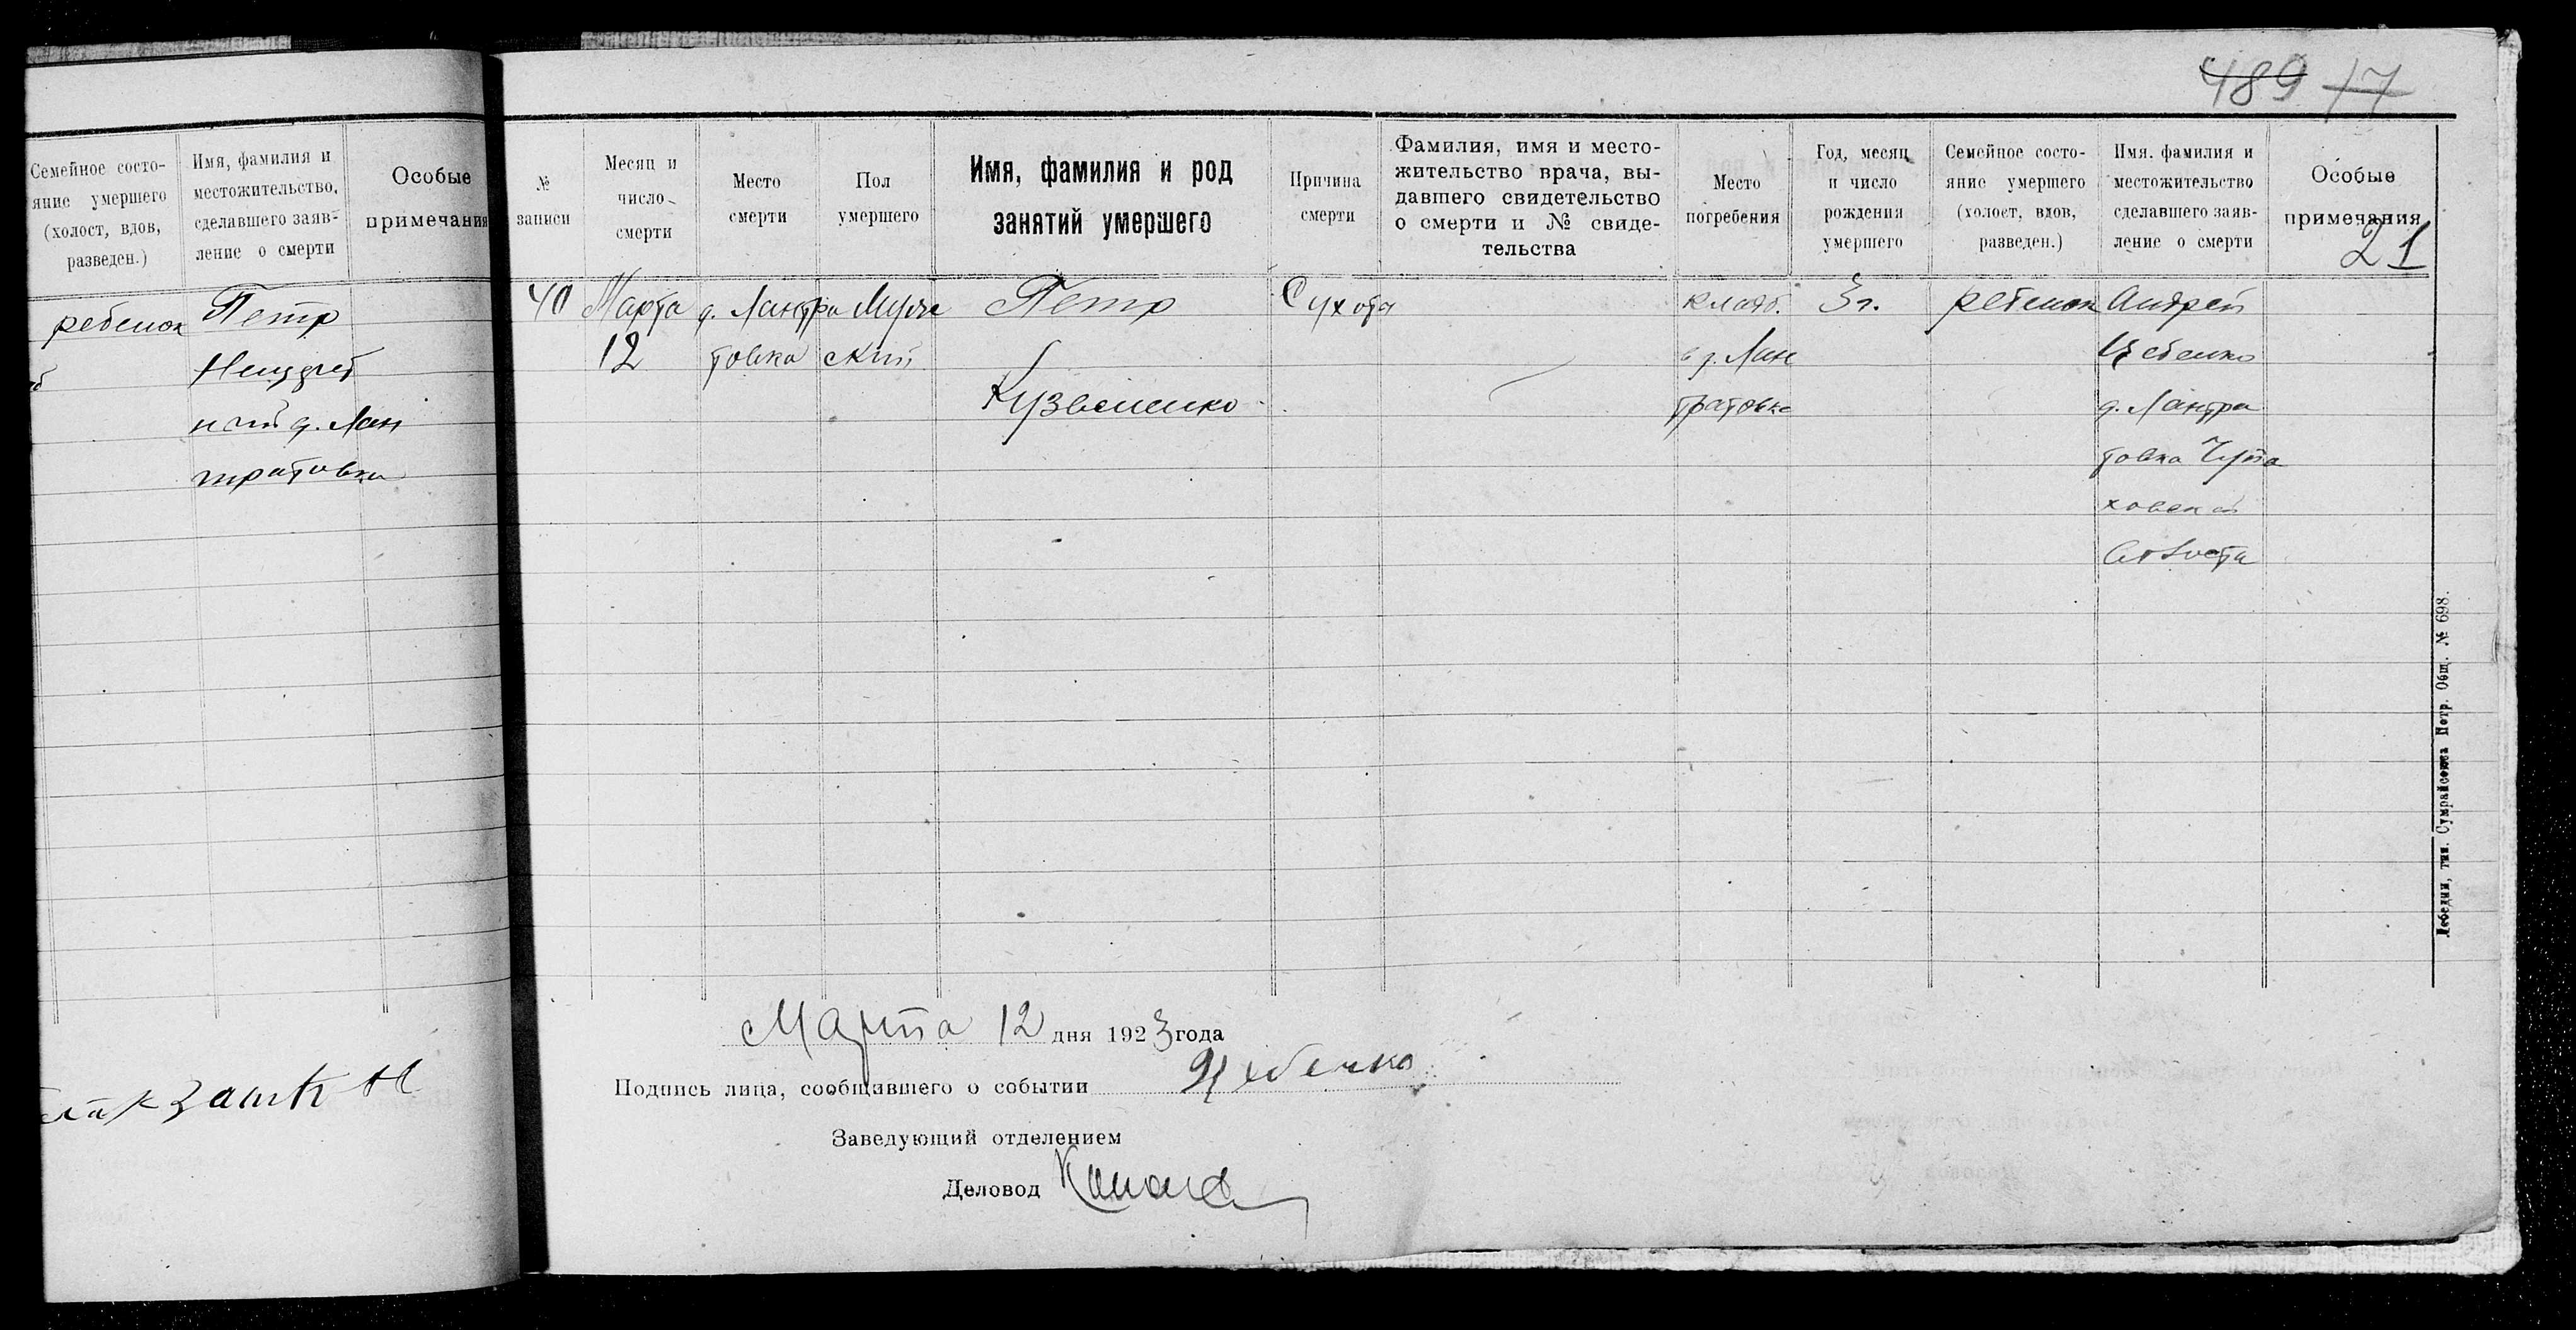 489 17
Семейное состо-
яние умершего
(холост, вдов,
разведен.)
Имя, фамилия и
местожительство,
сделавшего заяв-
ление о смерти
Особые
примечания
ребенок
Петр
д. Лан
тратовка
№
записи
Месяц и
число
смерти
Место
смерти
Пол
умершего
Имя, фамилия и род
занятий умершего
Причина
смерти
Фамилия, имя и место-
жительство врача, вы-
давшего свидетельство
о смерти и № свиде-
тельства
Место
погребения
Год, месяц
и число
рождения
умершего
Семейное состо-
яние умершего
(холост, вдов,
разведен.)
Имя. фамилия и
местожительство
сделавшего заяв-
ление о смерти
Особые
примечания
21
40
Марта
12
д. Лантра
товка
Муже
ский
Петр
Кузьменко
Сухота
кладб.
в д. Лан
тратовке
3 г.
ребенок
Андрей
Цебенко
д. Лантра
товка Чупа
ховской
Марта 12 дня 1923 года
Подпись лица, сообщившего о событии Цебенко
Заведующий отделением
Деловод
Лебедин, тип. Сумрайсоюза Потр. Общ. № 698.